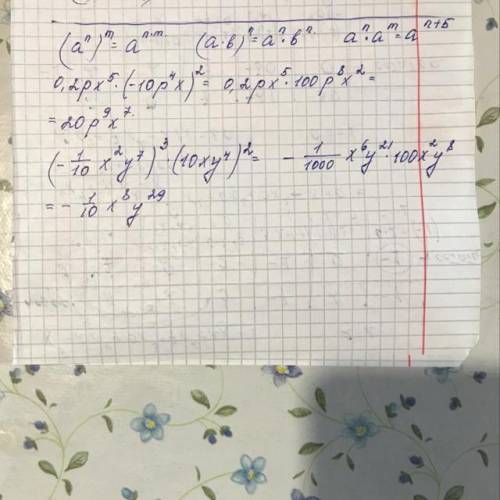 (aⁿ)ᵐ = aⁿ·ᵐ (a·b)ⁿ = aⁿ·bⁿ aⁿ·aᵐ = aⁿ⁺⁵
0,2px⁵·(-10p⁴x)² = 0,2px⁵·100p⁸x² =
= 20p⁹x⁷.
(-1/10 x²y⁷)³·(10xy⁴)² = - 1/1000 x⁶y²¹·100x²y⁸
= - 1/10 x⁸y²⁹